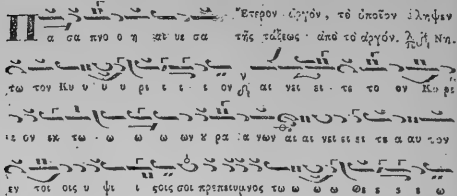 Ἕτερον ἀργόν, τὸ ὁποῖον ἐλήφθη
Πα σα πνο ο η αι νε σα τῆς τάξεως · ἀπὸ τὸ ἀργόν. Νη.
τω τον Κυ υ υ υ ρι ι ι ι ον αι νει ει τε το ον Κυ ρι
ι ον εκ τω ω ω ω ων ου ρα α νων αι αι νει ει ει τε α αυ τον
εν τοι οις υ ψι ι ι στοις σοι πρεπει υμνος τω ω ω ω Θε ε ε ε ω